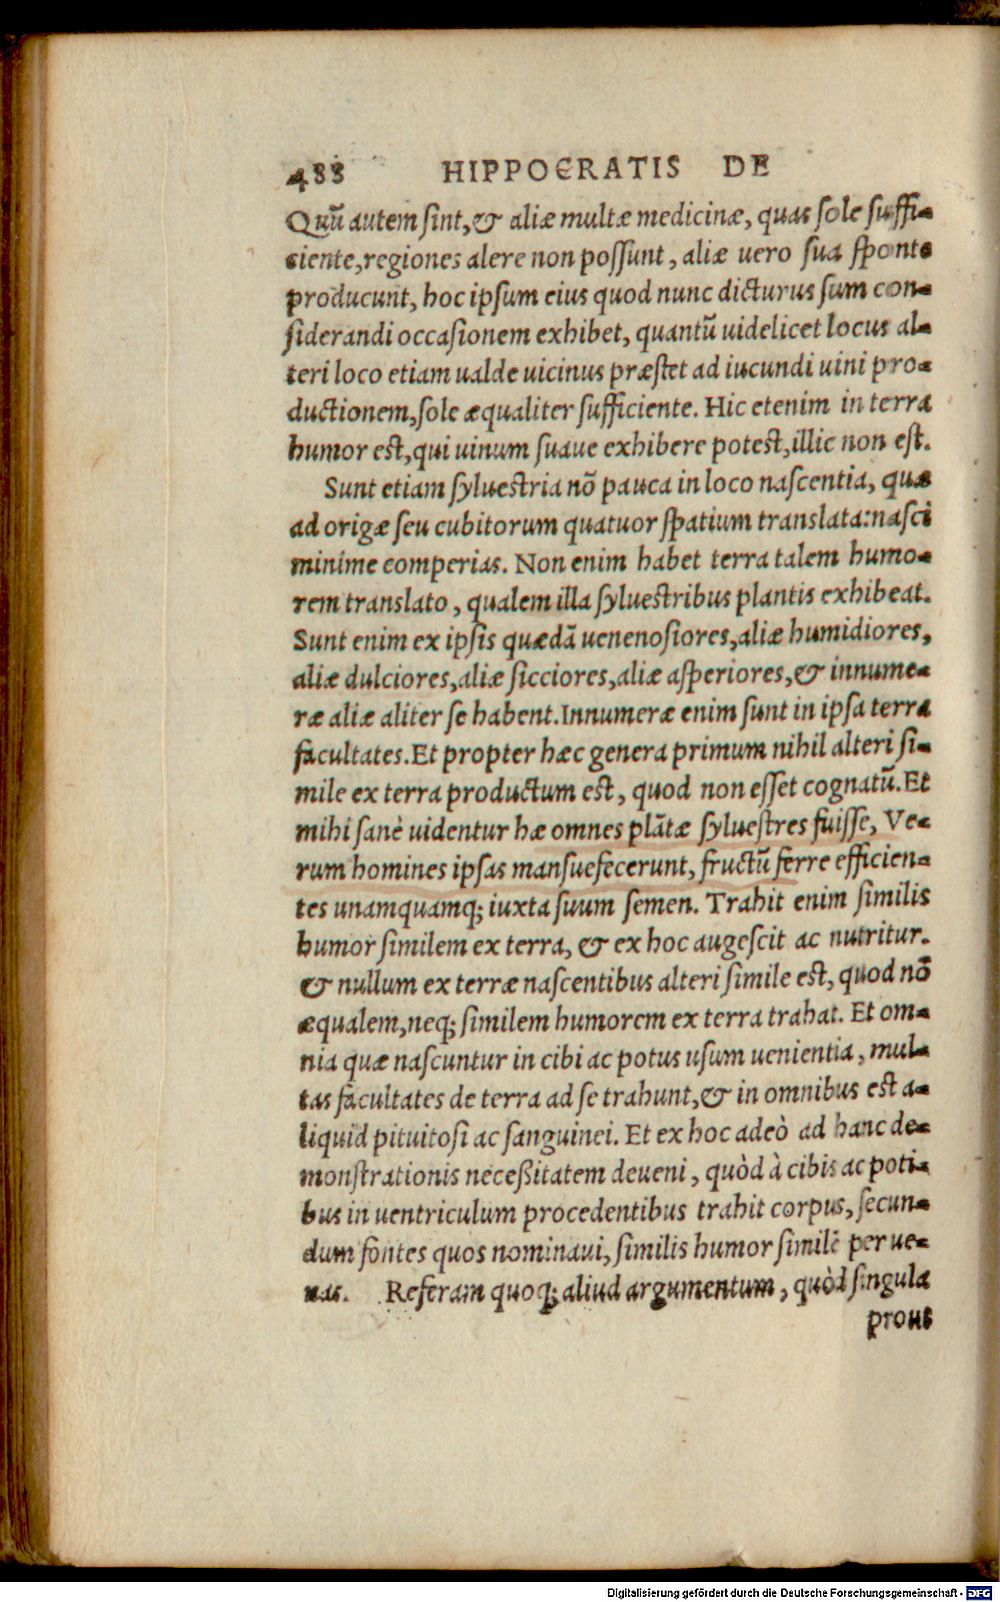 488 HIPPOCRATIS DE
Quū autem sint, & aliæ multæ medicinæ, quas sole suffi-
ciente, regiones alere non possunt, aliæ uero sua sponte
producunt, hoc ipsum eius quod nunc dicturus sum con-
siderandi occasionem exhibet, quantū uidelicet locus al-
teri loco etiam ualde uicinus præstet ad iucundi uini pro-
ductionem, sole æqualiter sufficiente. Hic etenim in terra
humor est, qui uinum suaue exhibere potest, illic non est.
Sunt etiam syluestria nō pauca in loco nascentia, quæ
ad origæ seu cubitorum quatuor spatium translata: nasci
minime comperias. Non enim habet terra talem humo-
rem translato, qualem illa syluestribus plantis exhibeat.
Sunt enim ex ipsis quædā uenenosiores, aliæ humidiores,
aliæ dulciores, aliæ sicciores, aliæ asperiores, & innume-
ræ aliæ aliter se habent. Innumeræ enim sunt in ipsa terra
facultates. Et propter hæc genera primum nihil alteri si-
mile ex terra productum est, quod non esset cognatū. Et
mihi sanè uidentur hæ omnes plātæ syluestres fuisse, Ve-
rum homines ipsas mansuefecerunt, fructū ferre efficien-
tes unamquamq; iuxta suum semen. Trahit enim similis
humor similem ex terra, & ex hoc augescit ac nutritur.
& nullum ex terræ nascentibus alteri simile est, quod nō
æqualem, neq; similem humorem ex terra trahat. Et om-
nia quæ nascuntur in cibi ac potus usum uenientia, mul-
tas facultates de terra ad se trahunt, & in omnibus est a-
liquid pituitosi ac sanguinei. Et ex hoc adeò ad hanc de-
monstrationis necessitatem deueni, quòd à cibis ac poti-
bus in uentriculum procedentibus trahit corpus, secun-
dum fontes quos nominaui, similis humor similē per ue-
nas. Referam quoq; aliud argumentum, quòd singula
prout
Digitalisierung gefördert durch die Deutsche Forschungsgemeinschaft - DFG